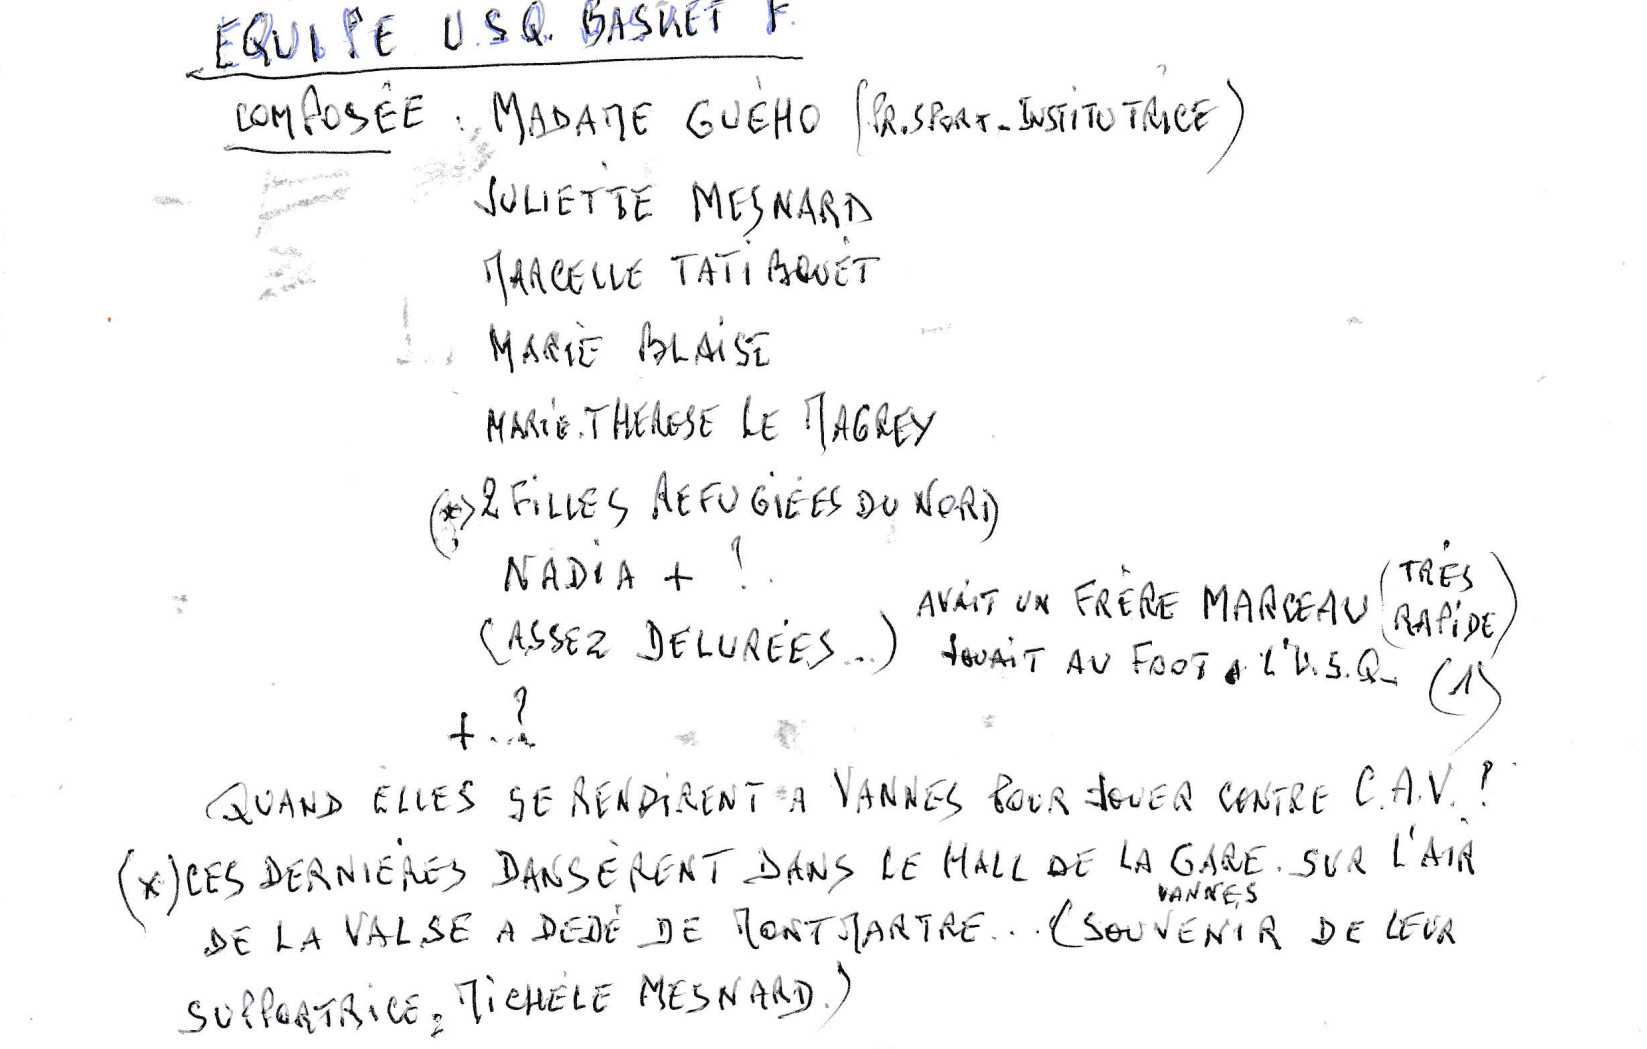 EQUIPE U.S.Q. BASKET F.
COMPOSÉE : MADAME GUÉHO (PR. SPORT - INSTITUTRICE)
JULIETTE MESNARD
MARCELLE TATIBOUËT
MARIE BLAISE
MARIE.THERESE LE MAGREY
(*) 2 FILLES REFUGIÉES DU NORD
NADIA + ?
(ASSEZ DELURÉES...) AVAIT UN FRÈRE MARCEAU (TRÈS RAPIDE)
JOUAIT AU FOOT A L'U.S.Q. (1)
+ ..?
QUAND ELLES SE RENDIRENT A VANNES POUR JOUER CONTRE C.A.V. !
(*) CES DERNIÈRES DANSÈRENT DANS LE HALL DE LA GARE. SUR L'AIR
VANNES
DE LA VALSE A DEDÉ DE MONTMARTRE... (SOUVENIR DE LEUR
SUPPORTRICE, MICHÈLE MESNARD.)